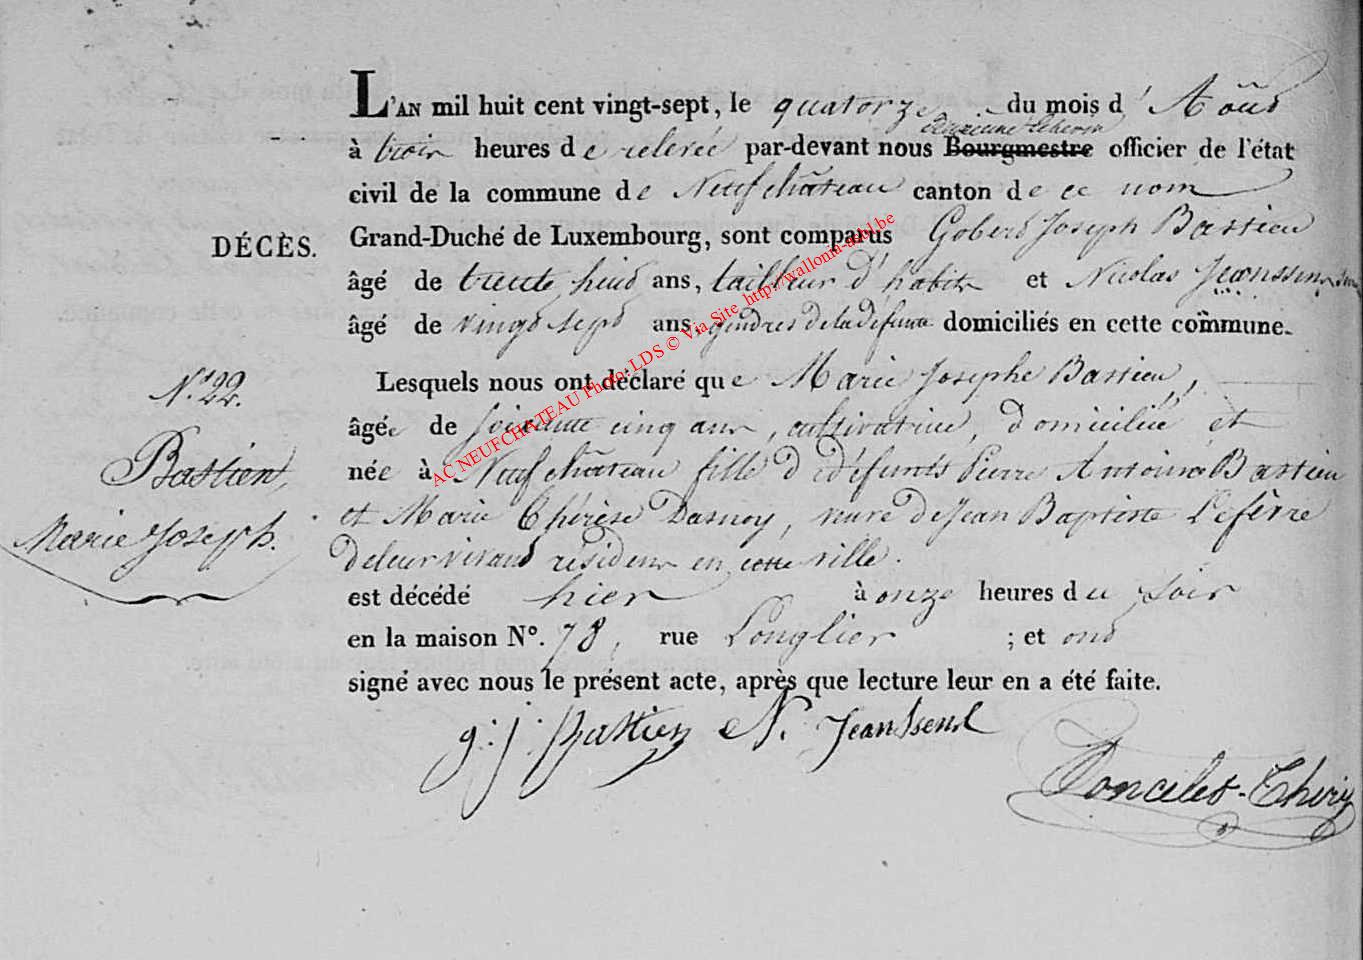 L'AN mil huit cent vingt-sept, le quatorze du mois d' Aoûs
à trois heures de relevée par-devant nous Bourgmestre officier de l'état
civil de la commune de Neufchâteau canton de ce nom
DÉCÈS.
Grand-Duché de Luxembourg, sont comparus Gobert Joseph Bastien
âgé de trente huit ans, tailleur d'habits et Nicolas Jeanssen
âgé de vingt sept ans, gendres de la défunte domiciliés en cette commune.
N.° 22.
Bastien,
Marie Joseph.
Lesquels nous ont déclaré que Marie Josephe Bastien,
âgée de soixante cinq ans, cultivatrice, domiciliée et
née à Neufchâteau fille d défunts Pierre Antoine Bastien
et Marie Thérèse Dasnoy, veuve de Jean Baptiste Lefèvre
de leur vivant résidens en cette ville.
est décédé hier à onze heures du soir
en la maison N°. 78, rue Longlier ; et ont
signé avec nous le présent acte, après que lecture leur en a été faite.
g. j. Bastien N. Jeanssend
Poncelet-Thery
AC NEUFCHATEAU Photo: LDS © Via Site http://wallonia-asbl.be